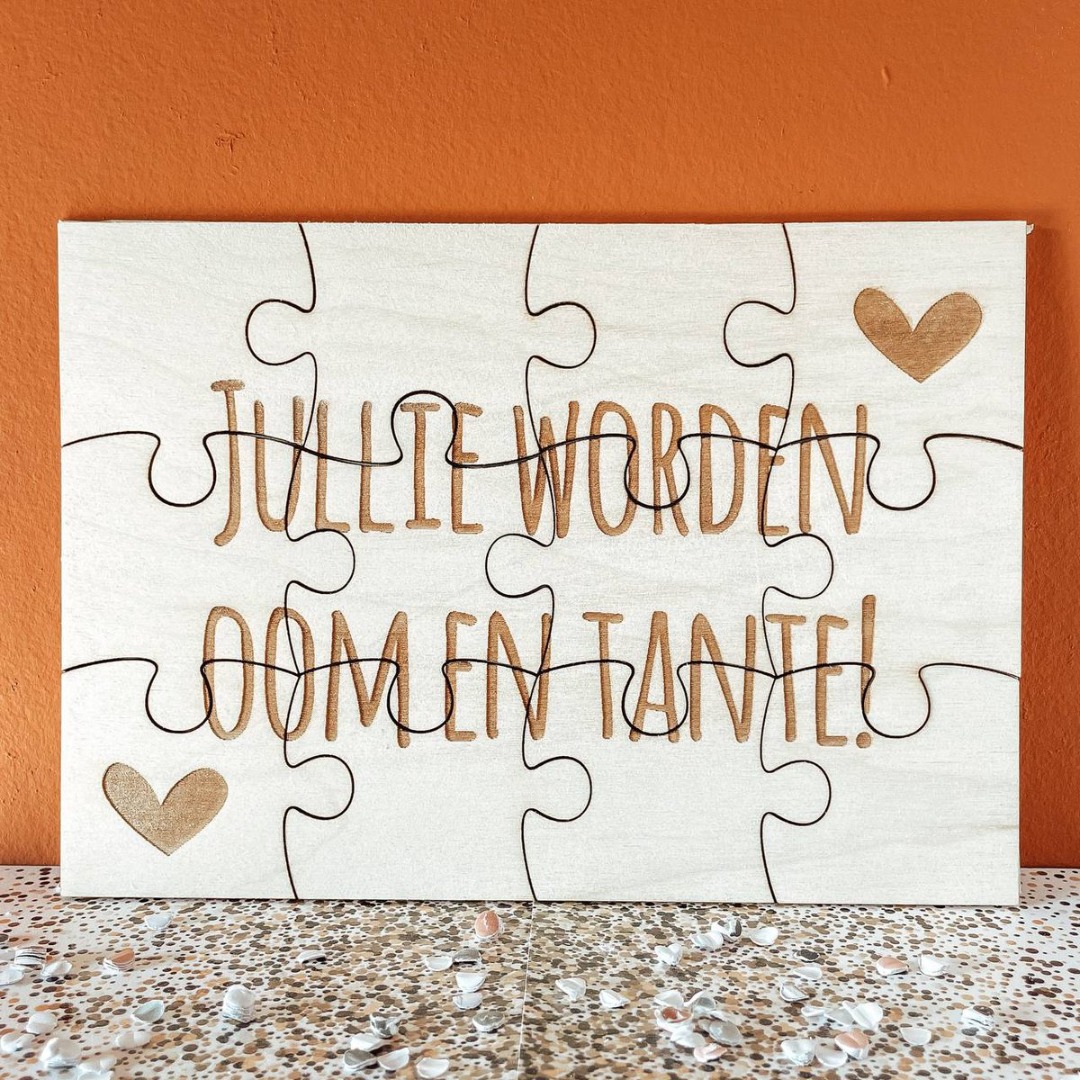 JULLIE WORDEN
OOM EN TANTE!